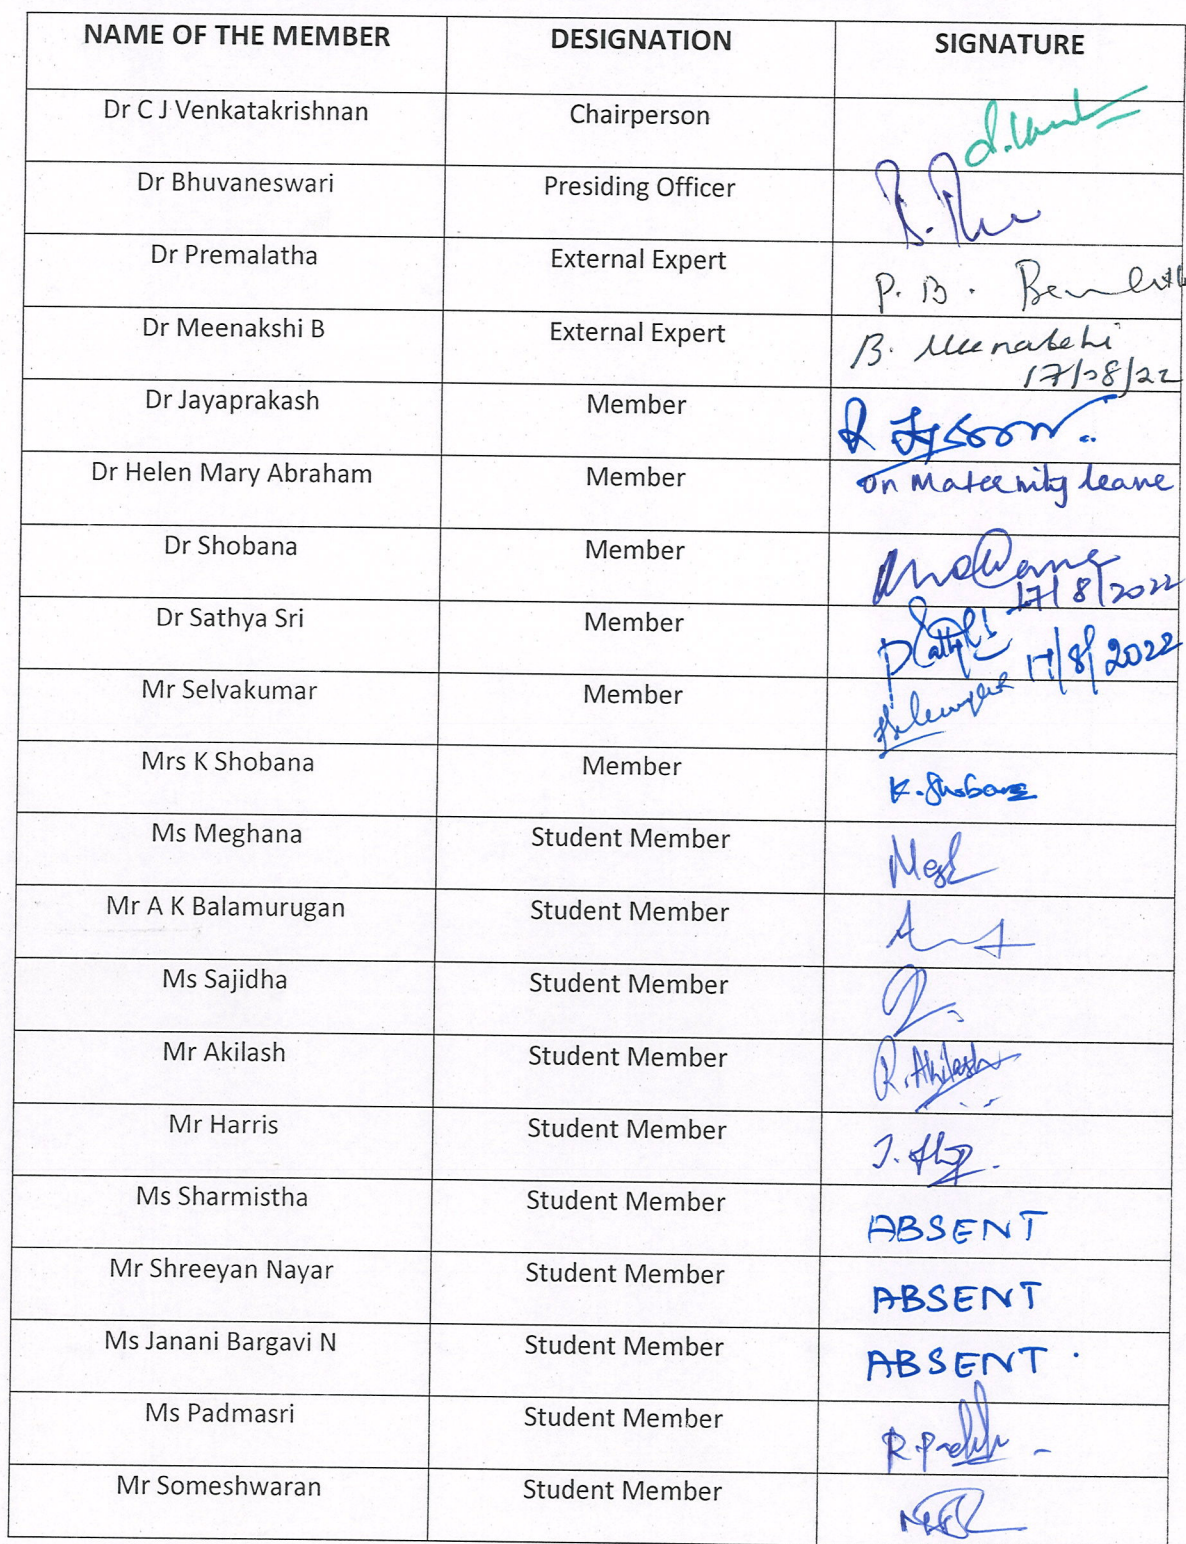 NAME OF THE MEMBER DESIGNATION SIGNATURE
Dr C J Venkatakrishnan Chairperson
Dr Bhuvaneswari Presiding Officer
Dr Premalatha External Expert P. B.
Dr Meenakshi B External Expert B. Meenakshi
17/08/22
Dr Jayaprakash Member
Dr Helen Mary Abraham Member on Maternity leave
Dr Shobana Member
17/8/2022
Dr Sathya Sri Member 17/8/2022
Mr Selvakumar Member
Mrs K Shobana Member K. Shobana
Ms Meghana Student Member Megh
Mr A K Balamurugan Student Member
Ms Sajidha Student Member
Mr Akilash Student Member R. Akilash
Mr Harris Student Member
Ms Sharmistha Student Member ABSENT
Mr Shreeyan Nayar Student Member ABSENT
Ms Janani Bargavi N Student Member ABSENT .
Ms Padmasri Student Member
Mr Someshwaran Student Member